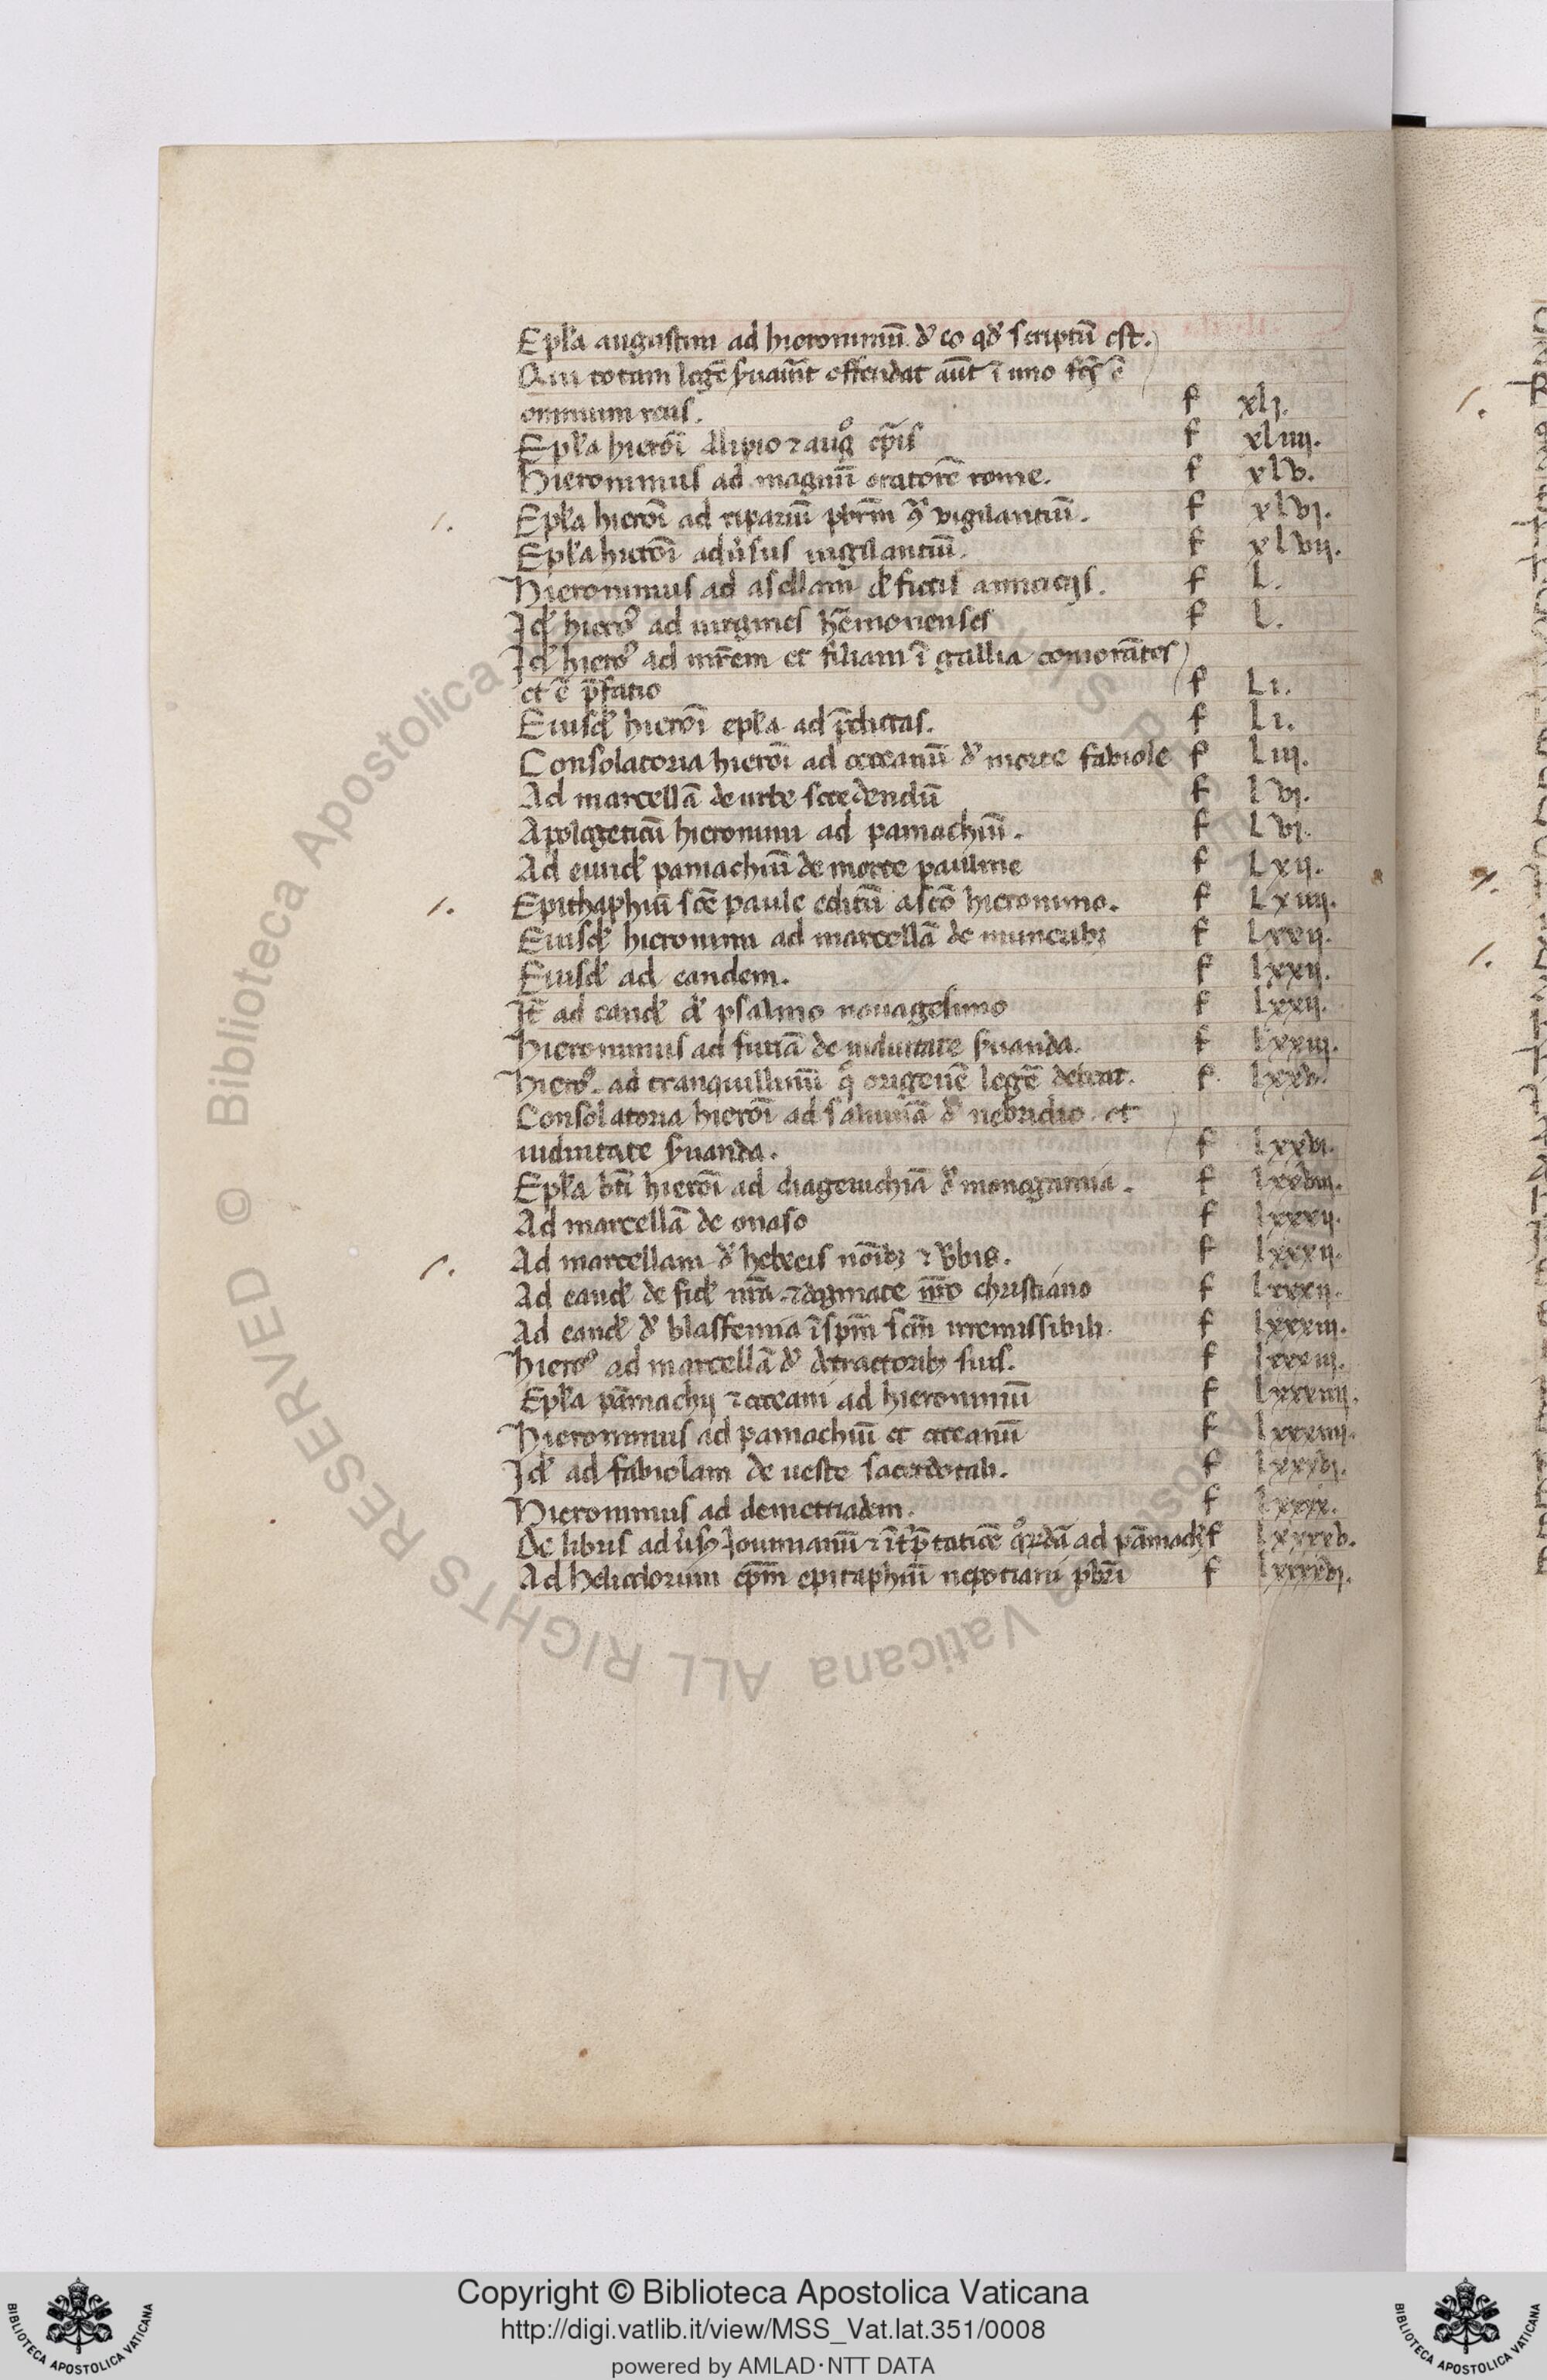 Epl'a augustini ad hieronimū. d' eo qd' scriptū est.
Qui totam legē s̄uau̅it offendat aūt ī uno fc̄s ē
omnium reus. f xlj.
Epl'a hieroī Alipio ⁊ aug° ep̄is f xliiij.
Hieronimus ad magnū oratorē rome. f xlv.
Epl'a hieroī ad ripariū pbrm̄ 9ª vigilantiū. f xlvj.
Epl'a hieroī adu'sus uigilantiū. f xlvij.
Hieronimus ad asellam d' fictis amicicijs. f L.
Jd' hiero° ad uirgines hēmonenses f L.
Jd' hiero° ad mr̄em et filiam ī gallia comorātes
et ē p̄fatio f Li.
Eiusd' hieroī epl'a ad p̄dictas. f Li.
Consolatoria hieroī ad occeanū d' morte fabiole f Liij.
Ad marcellā de urbe secedendū f lvj.
Apologeticū hieronimi ad pamachiū. f lvj.
Ad eund' pamachiū de morte pauline f Lxij.
Epithaphiū sc̄e paule editū a sc̄o hieronimo. f Lxiiij.
Eiusd' hieronimi ad marcellā de munerib; f lxxij.
Eiusd' ad eandem. f lxxij.
Jt̄ ad eand' d' psalmo nonagesimo f lxxij.
Hieronimus ad furiā de uiduitate s̄uanda. f lxxiij.
Hiero° ad tranquillinū q° origenē legē debeat. f lxxv.
Consolatoria hieroī ad saluinā d' nebridio et
uiduitate s̄uanda. f lxxvj.
Epl'a bt̄i hieroī ad diageruchiā d' monogamia. f lxxviij.
Ad marcellā de onaso f lxxxij.
Ad marcellam d' hebreis noīb; ⁊ v̄bis. f lxxxij.
Ad eand' de fid' nr̄a ⁊ dogmate nr̄o christiano f lxxxij.
Ad eand' d' blasfemia ī sp̄m sc̄m irremissibili. f lxxxiij.
hiero° ad marcellā d' detractorib; suis. f lxxxiij.
Epl'a pāmachij ⁊ occeani ad hieronimū f lxxxiiij.
Hieronimus ad pamachiū et occeanū f lxxxiiij.
Jd' ad fabiolam de ueste sacerdotali. f lxxxvj.
Hieronimus ad demetriadem. f lxxxix.
De libris adu'sus Jouinianū ⁊ īt'p̄tatiōe q°rdā ad pāmach' f lxxxxv.
Ad heliodorum ep̄m epitaphiū nepotiani pbr̄i f lxxxxvj.
Copyright © Biblioteca Apostolica Vaticana
http://digi.vatlib.it/view/MSS_Vat.lat.351/0008
powered by AMLAD·NTT DATA